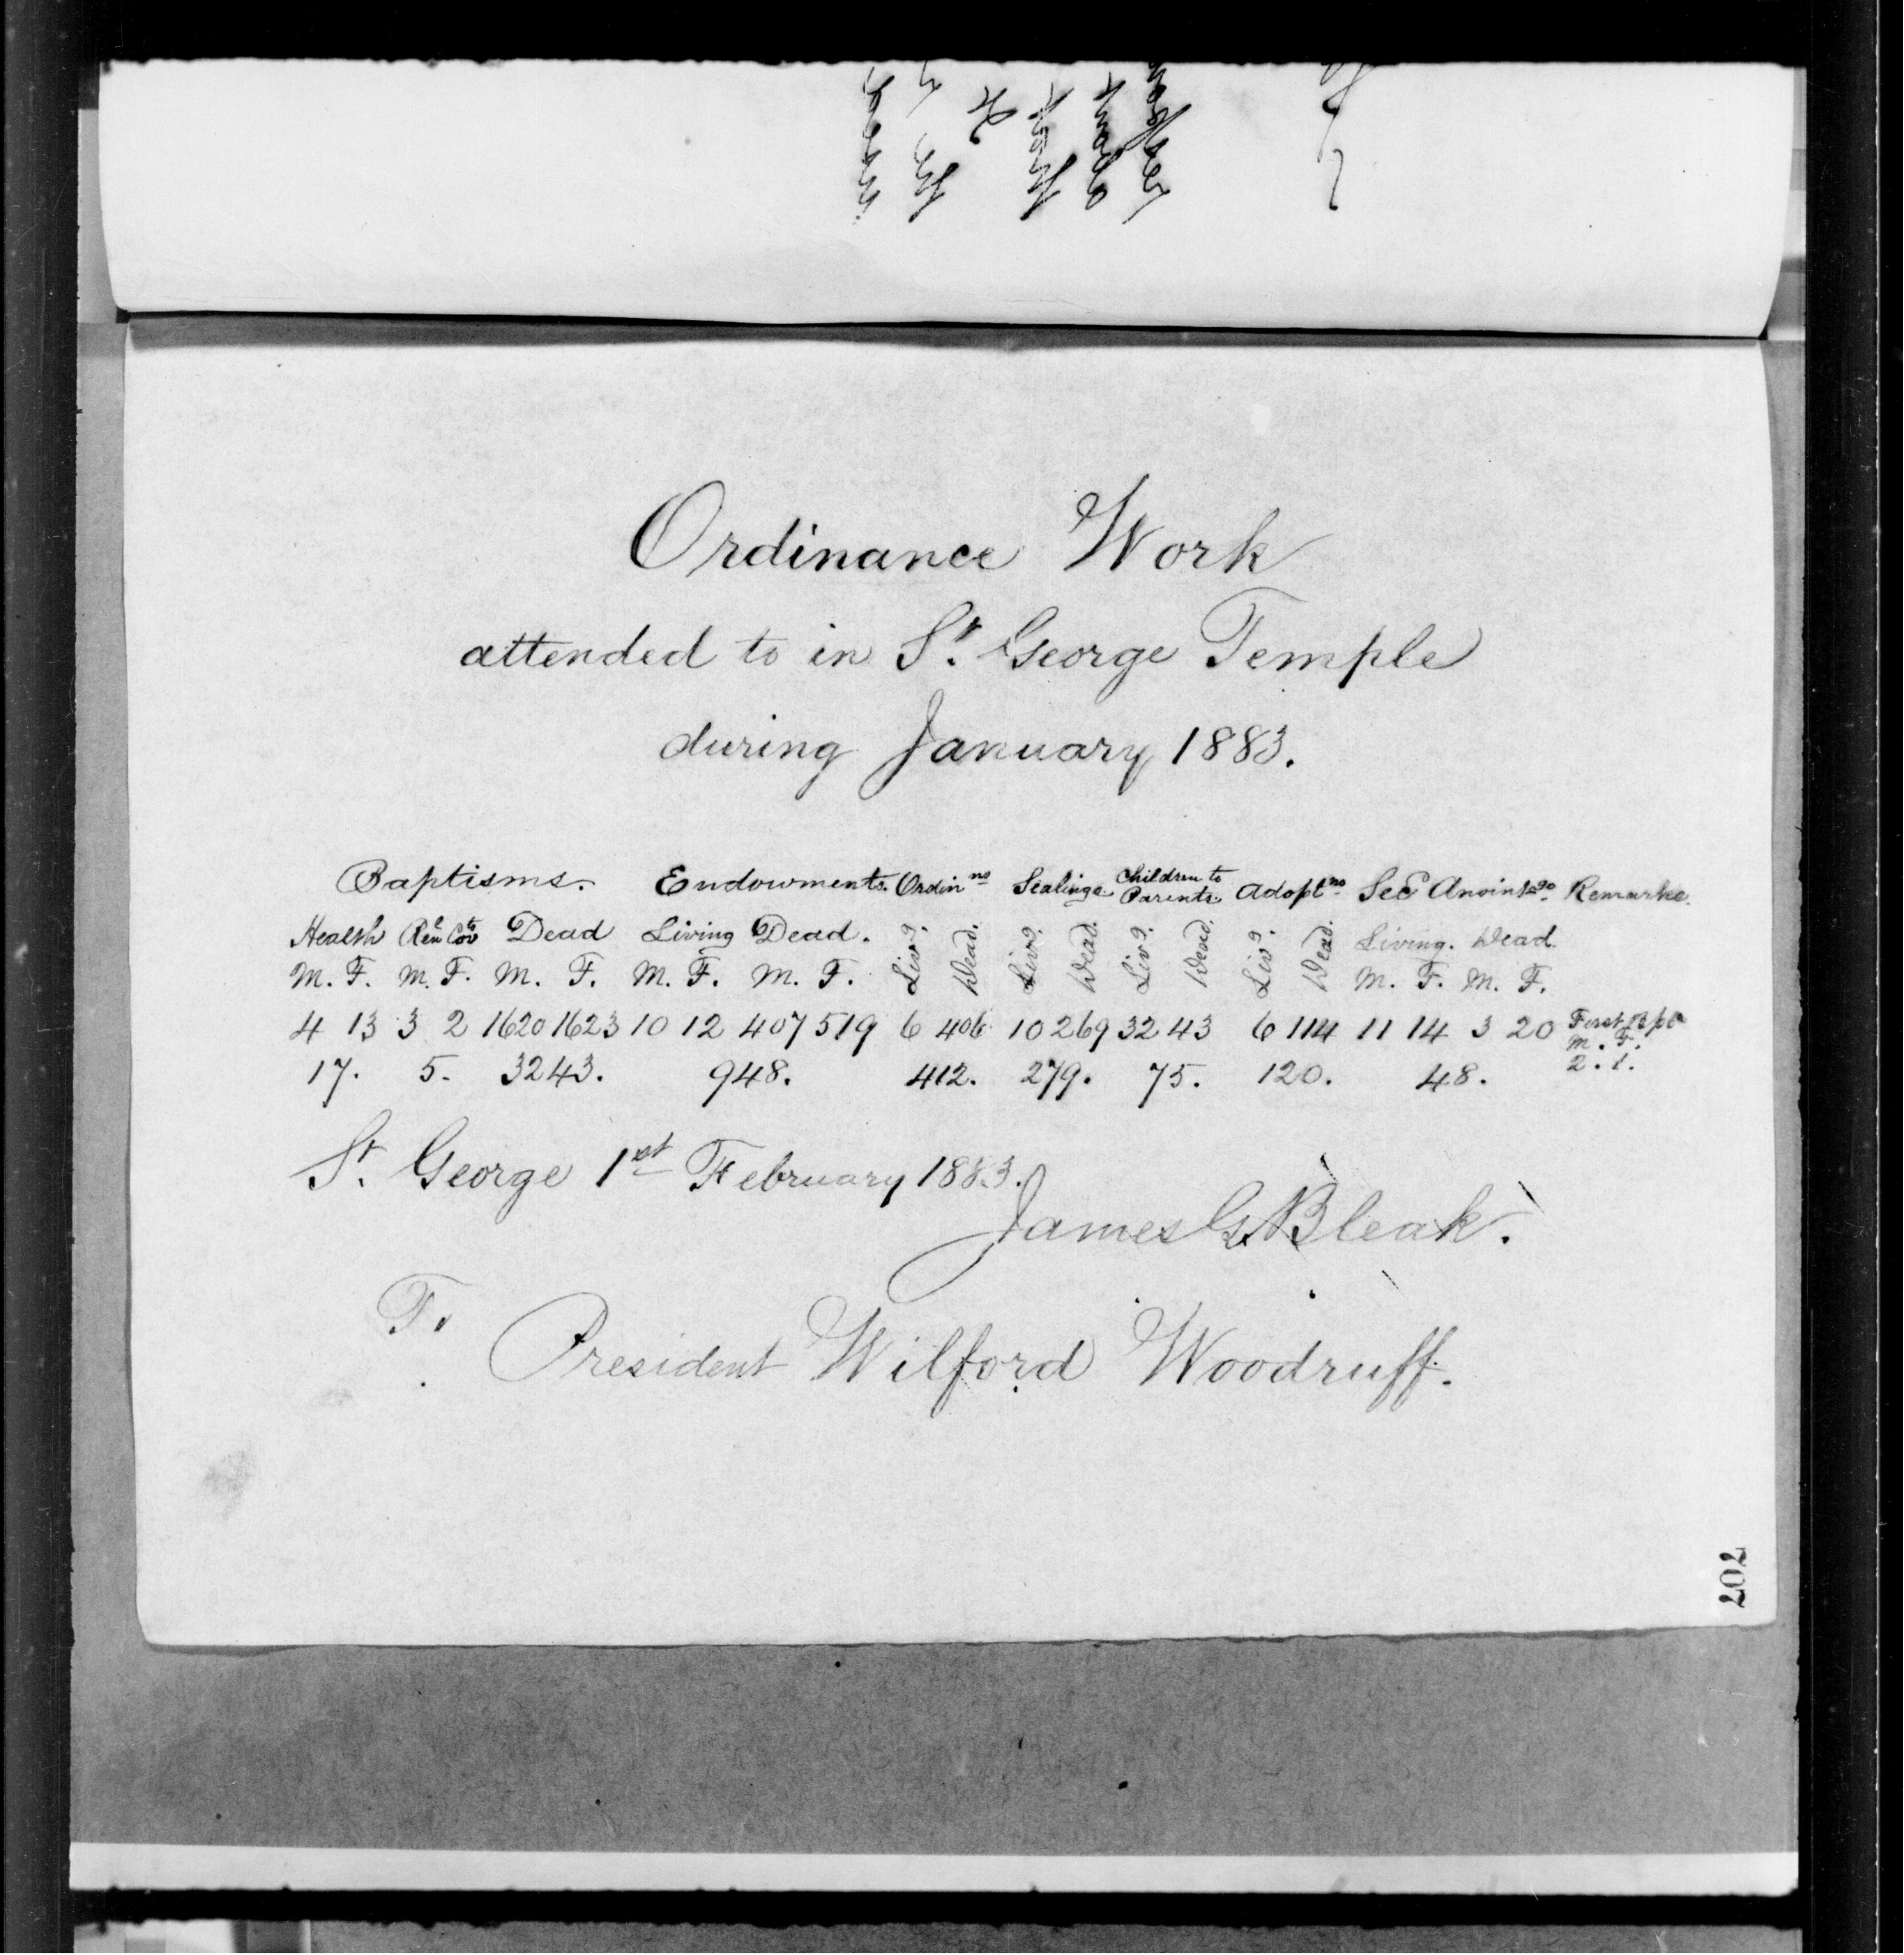 Ordinance Work
attended to in St. George Temple
during January 1883.
Baptisms. Endowments. Ordin ns Sealings Children to Parents Adopt ns Sec d Anoint gs Remarks.
Health Ren l Cov ts Dead Living Dead. Liv g. Dead. Liv g. Dead. Liv g. Dead. Liv g. Dead. Living. Dead.
M. F. M. F. M. F. M. F. M. F. M. F. M. F.
4 13 3 2 1620 1623 10 12 407 519 6 406 10 269 32 43 6 114 11 14 3 20 First Bpt
M. F.
17. 5. 3243. 948. 412. 279. 75. 120. 48. 2. 1.
St. George 1st February 1883.
James G. Bleak.
To
President Wilford Woodruff.
202